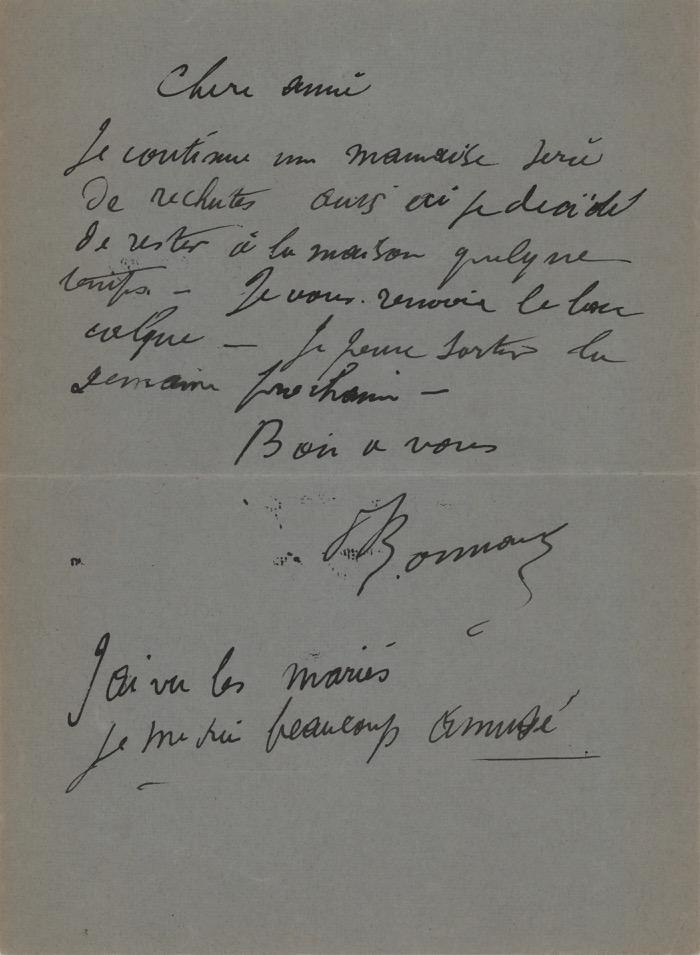 Chere amie
Je continue une mauvaise serie
de rechutes aussi ai je decidé
de rester à la maison quelque
temps – Je vous renvoie le bon
calque – Je pense sortir la
semaine prochaine –
Bon a vous
Bonnard
J'ai vu les mariés
je me sui beaucoup amusé